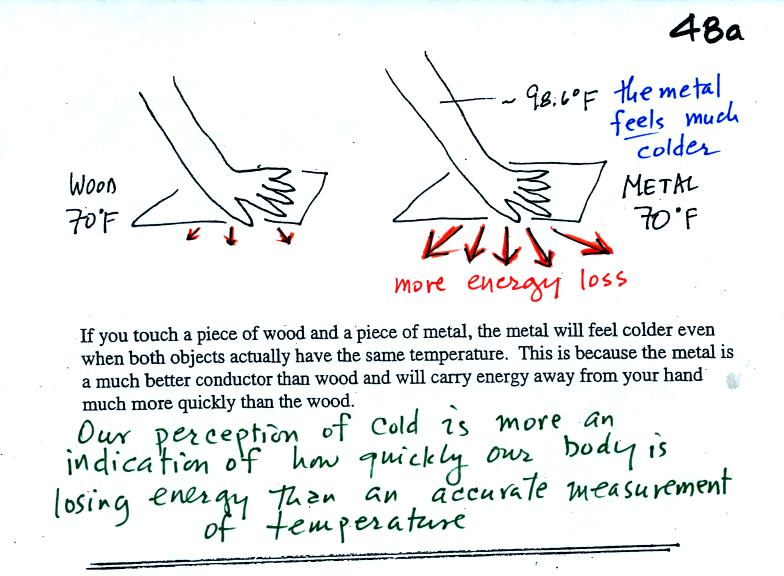 48a
~ 98.6°F
the metal
feels much
colder
WOOD
70°F
METAL
70°F
more energy loss
If you touch a piece of wood and a piece of metal, the metal will feel colder even
when both objects actually have the same temperature. This is because the metal is
a much better conductor than wood and will carry energy away from your hand
much more quickly than the wood.
Our perception of cold is more an
indication of how quickly our body is
losing energy than an accurate measurement
of temperature